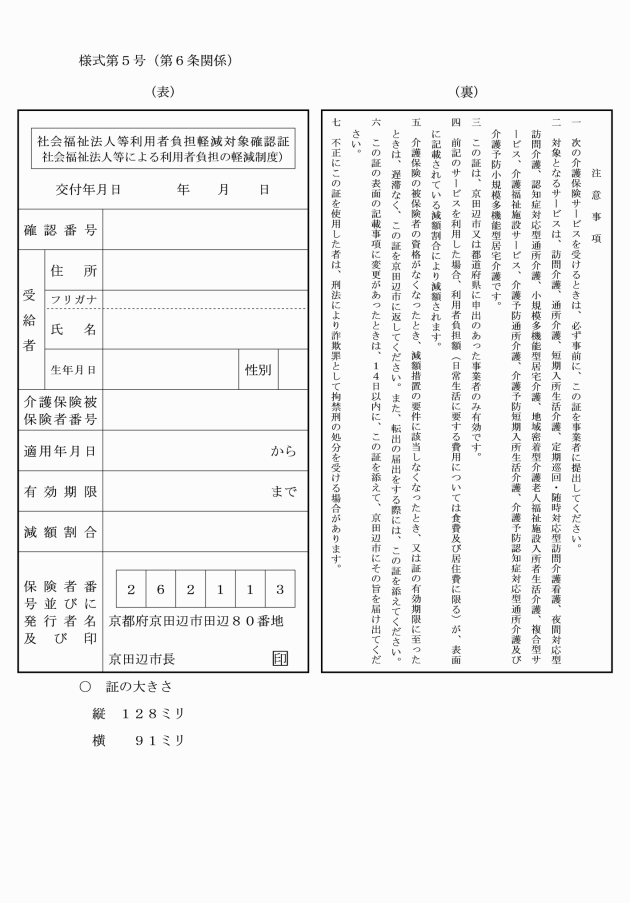 様式第５号（第６条関係）
（表）
社会福祉法人等利用者負担軽減対象確認証
社会福祉法人等による利用者負担の軽減制度）
交付年月日　　　　年　　月　　日
確認番号
受給者
住　所
フリガナ
氏　名
生年月日
性別
介護保険被
保険者番号
適用年月日
から
有効期限
まで
減額割合
保険者番
号並びに
発行者名
及び印
２６２１１３
京都府京田辺市田辺８０番地
京田辺市長
印
（裏）
注意事項
一　次の介護保険サービスを受けるときは、必ず事前に、この証を事業者に提出してください。
二　対象となるサービスは、訪問介護、通所介護、短期入所生活介護、定期巡回・随時対応型訪問介護看護、夜間対応型
訪問介護、認知症対応型通所介護、小規模多機能型居宅介護、地域密着型介護老人福祉施設入所者生活介護、複合型サ
ービス、介護福祉施設サービス、介護予防通所介護、介護予防短期入所生活介護、介護予防認知症対応型通所介護及び
介護予防小規模多機能型居宅介護です。
三　この証は、京田辺市又は都道府県に申出のあった事業者のみ有効です。
四　前記のサービスを利用した場合、利用者負担額（日常生活に要する費用については食費及び居住費に限る）が、表面
に記載されている減額割合により減額されます。
五　介護保険の被保険者の資格がなくなったとき、減額措置の要件に該当しなくなったとき、又は証の有効期限に至った
ときは、遅滞なく、この証を京田辺市に返してください。また、転出の届出をする際には、この証を添えてください。
六　この証の表面の記載事項に変更があったときは、１４日以内に、この証を添えて、京田辺市にその旨を届け出てくだ
さい。
七　不正にこの証を使用した者は、刑法により詐欺罪として拘禁刑の処分を受ける場合があります。
〇　証の大きさ
縦　１２８ミリ
横　　９１ミリ